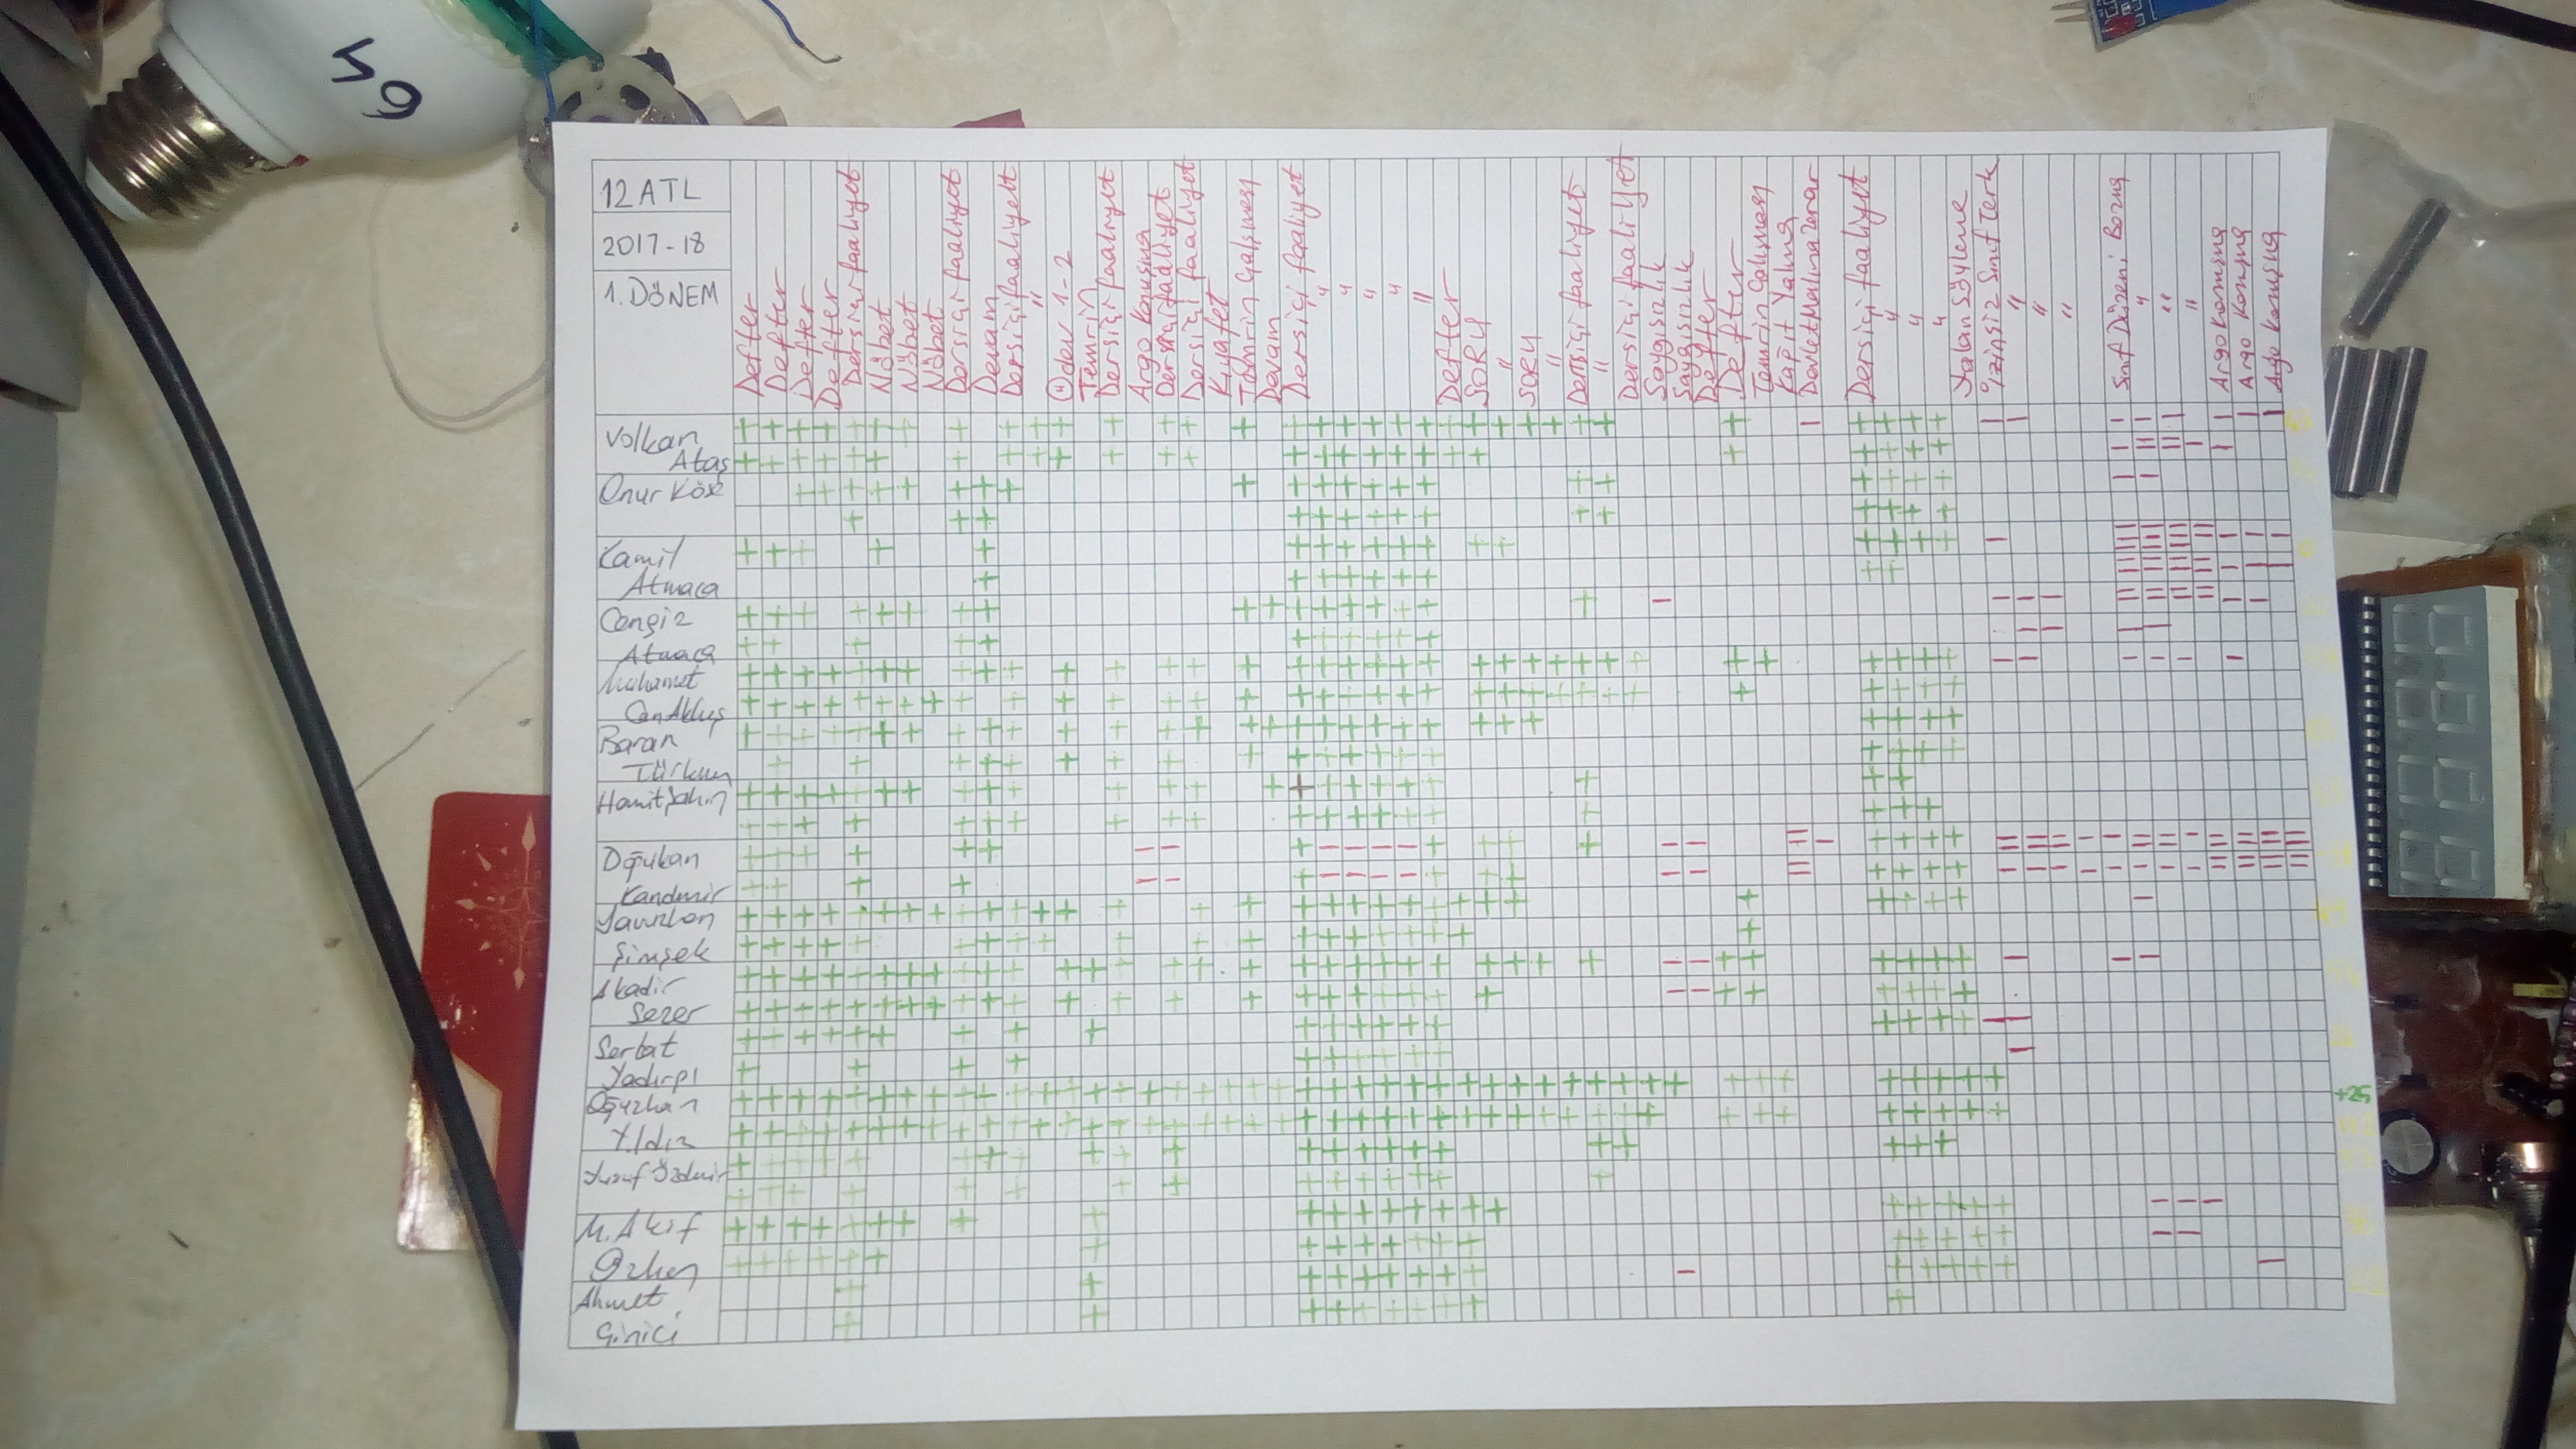 64
12 ATL
2017-18
1. DÖNEM
Defter
Defter
Defter
Defter
Dersiçi faaliyet
Nöbet
Nöbet
Nöbet
Dersiçi faaliyet
Devam
Dersiçi faaliyet
"
Ödev 1-2
Temrin
Dersiçi faaliyet
Argo Konuşma
Dersiçi faaliyet
Dersiçi faaliyet
Kıyafet
Temrin Çalışması
Devam
Dersiçi faaliyet
"
"
"
"
"
Defter
SORU
"
SORU
"
Dersiçi faaliyet
"
Dersiçi faaliyet
Saygısızlık
Saygısızlık
Defter
Defter
Temrin Çalışması
Kağıt Yakma
Devlet Malına Zarar
Dersiçi faaliyet
"
"
"
Yalan Söyleme
İzinsiz Sınıf Terk
"
"
"
Sınıf Düzeni Bozma
"
"
"
Argo Konuşma
Argo Konuşma
Argo Konuşma
Volkan
Ataş
Onur Köse
Kamil
Atmaca
Cengiz
Atmaca
Muhamet
Can Akkuş
Baran
Türkmen
Hamit Şahin
Doğukan
Kandmir
Yavuzhan
Şimşek
A.kadir
Sezer
Serhat
Yadırgı
Oğuzhan
Yıldız
+25
Yusuf Özdmir
M. Akif
Özkan
Ahmet
Ginici